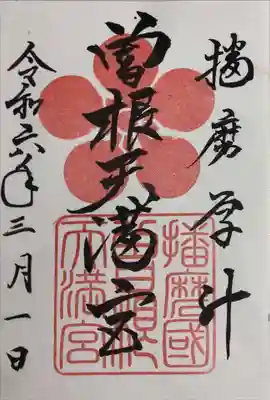 播磨学斗
曽根天満宮
令和六年三月一日
播磨國
曽根
天満宮